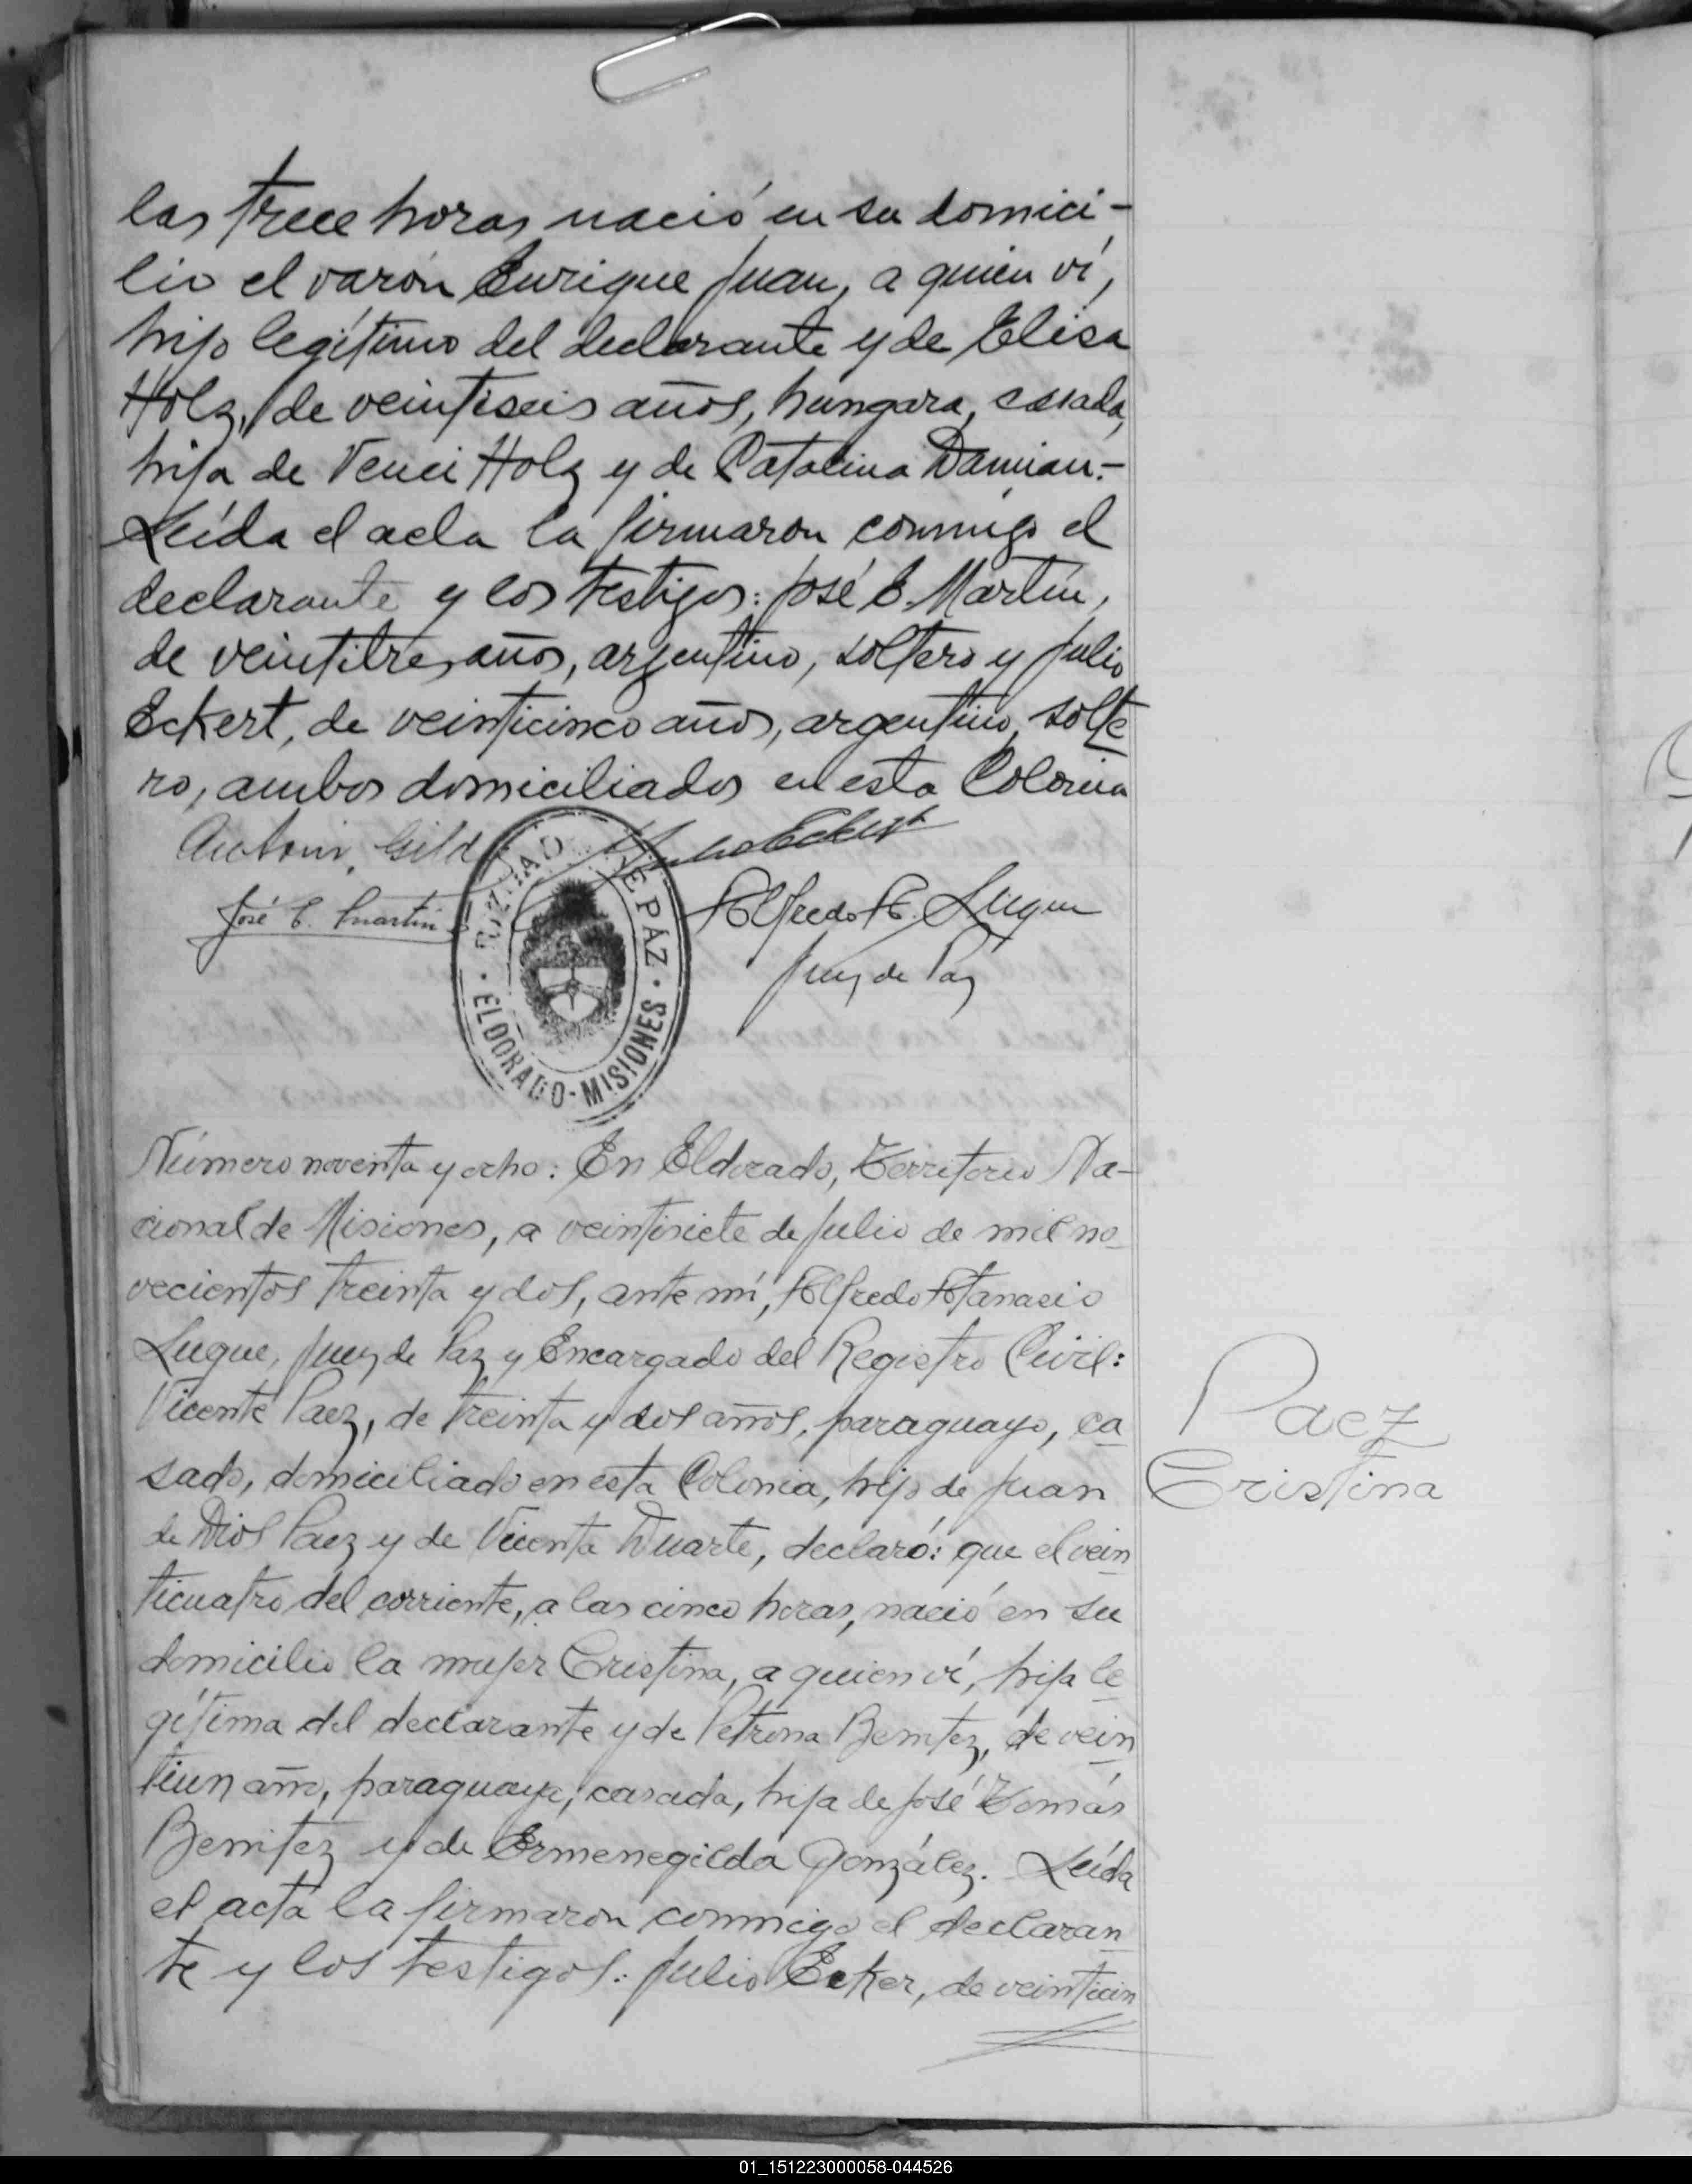 las trece horas nació en su domici-
lio el varón Enrique Juan, a quien ví,
hijo legítimo del declarante y de Elisa
Holz, de veintiseis años, hungara, casada,
hija de Venci Holz y de Catalina Damian.-
Leída el acta la firmaron conmigo el
declarante y los testigos: José E. Martín,
de veintitres años, argentino, soltero y Julio
Eckert, de veinticinco años, argentino, solte
ro, ambos domiciliados en esta Colonia
Julio Eckert
José E. Martin
Alfredo A. Luque
Juez de Paz
JUZGADO DE PAZ · ELDORADO-MISIONES ·
Número noventa y ocho: En Eldorado, Territorio Na-
cional de Misiones, a veintisiete de Julio de mil no-
vecientos treinta y dos, ante mí, Alfredo Atanacio
Luque, Juez de Paz y Encargado del Registro Civil:
Vicente Paez, de treinta y dos años, paraguayo, ca
sado, domiciliado en esta Colonia, hijo de Juan
de Dios Paez y de Vicenta Duarte, declaró: que el vein
ticuatro del corriente, a las cinco horas, nació en su
domicilio la mujer Cristina, a quien ví, hija le
gítima del declarante y de Petrona Benitez, de vein
tiun año, paraguaya, casada, hija de José Tomás
Benitez y de Ermenegilda González. Leída
el acta la firmaron conmigo el declaran
te y los testigos: Julio Ecker, de veinticin
Paez
Cristina
01_151223000058-044526